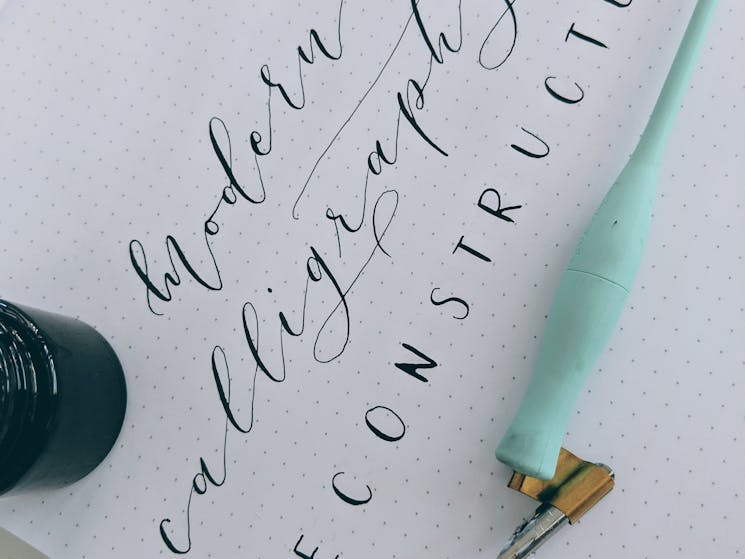 Modern
calligraphy
ECONSTRUCT